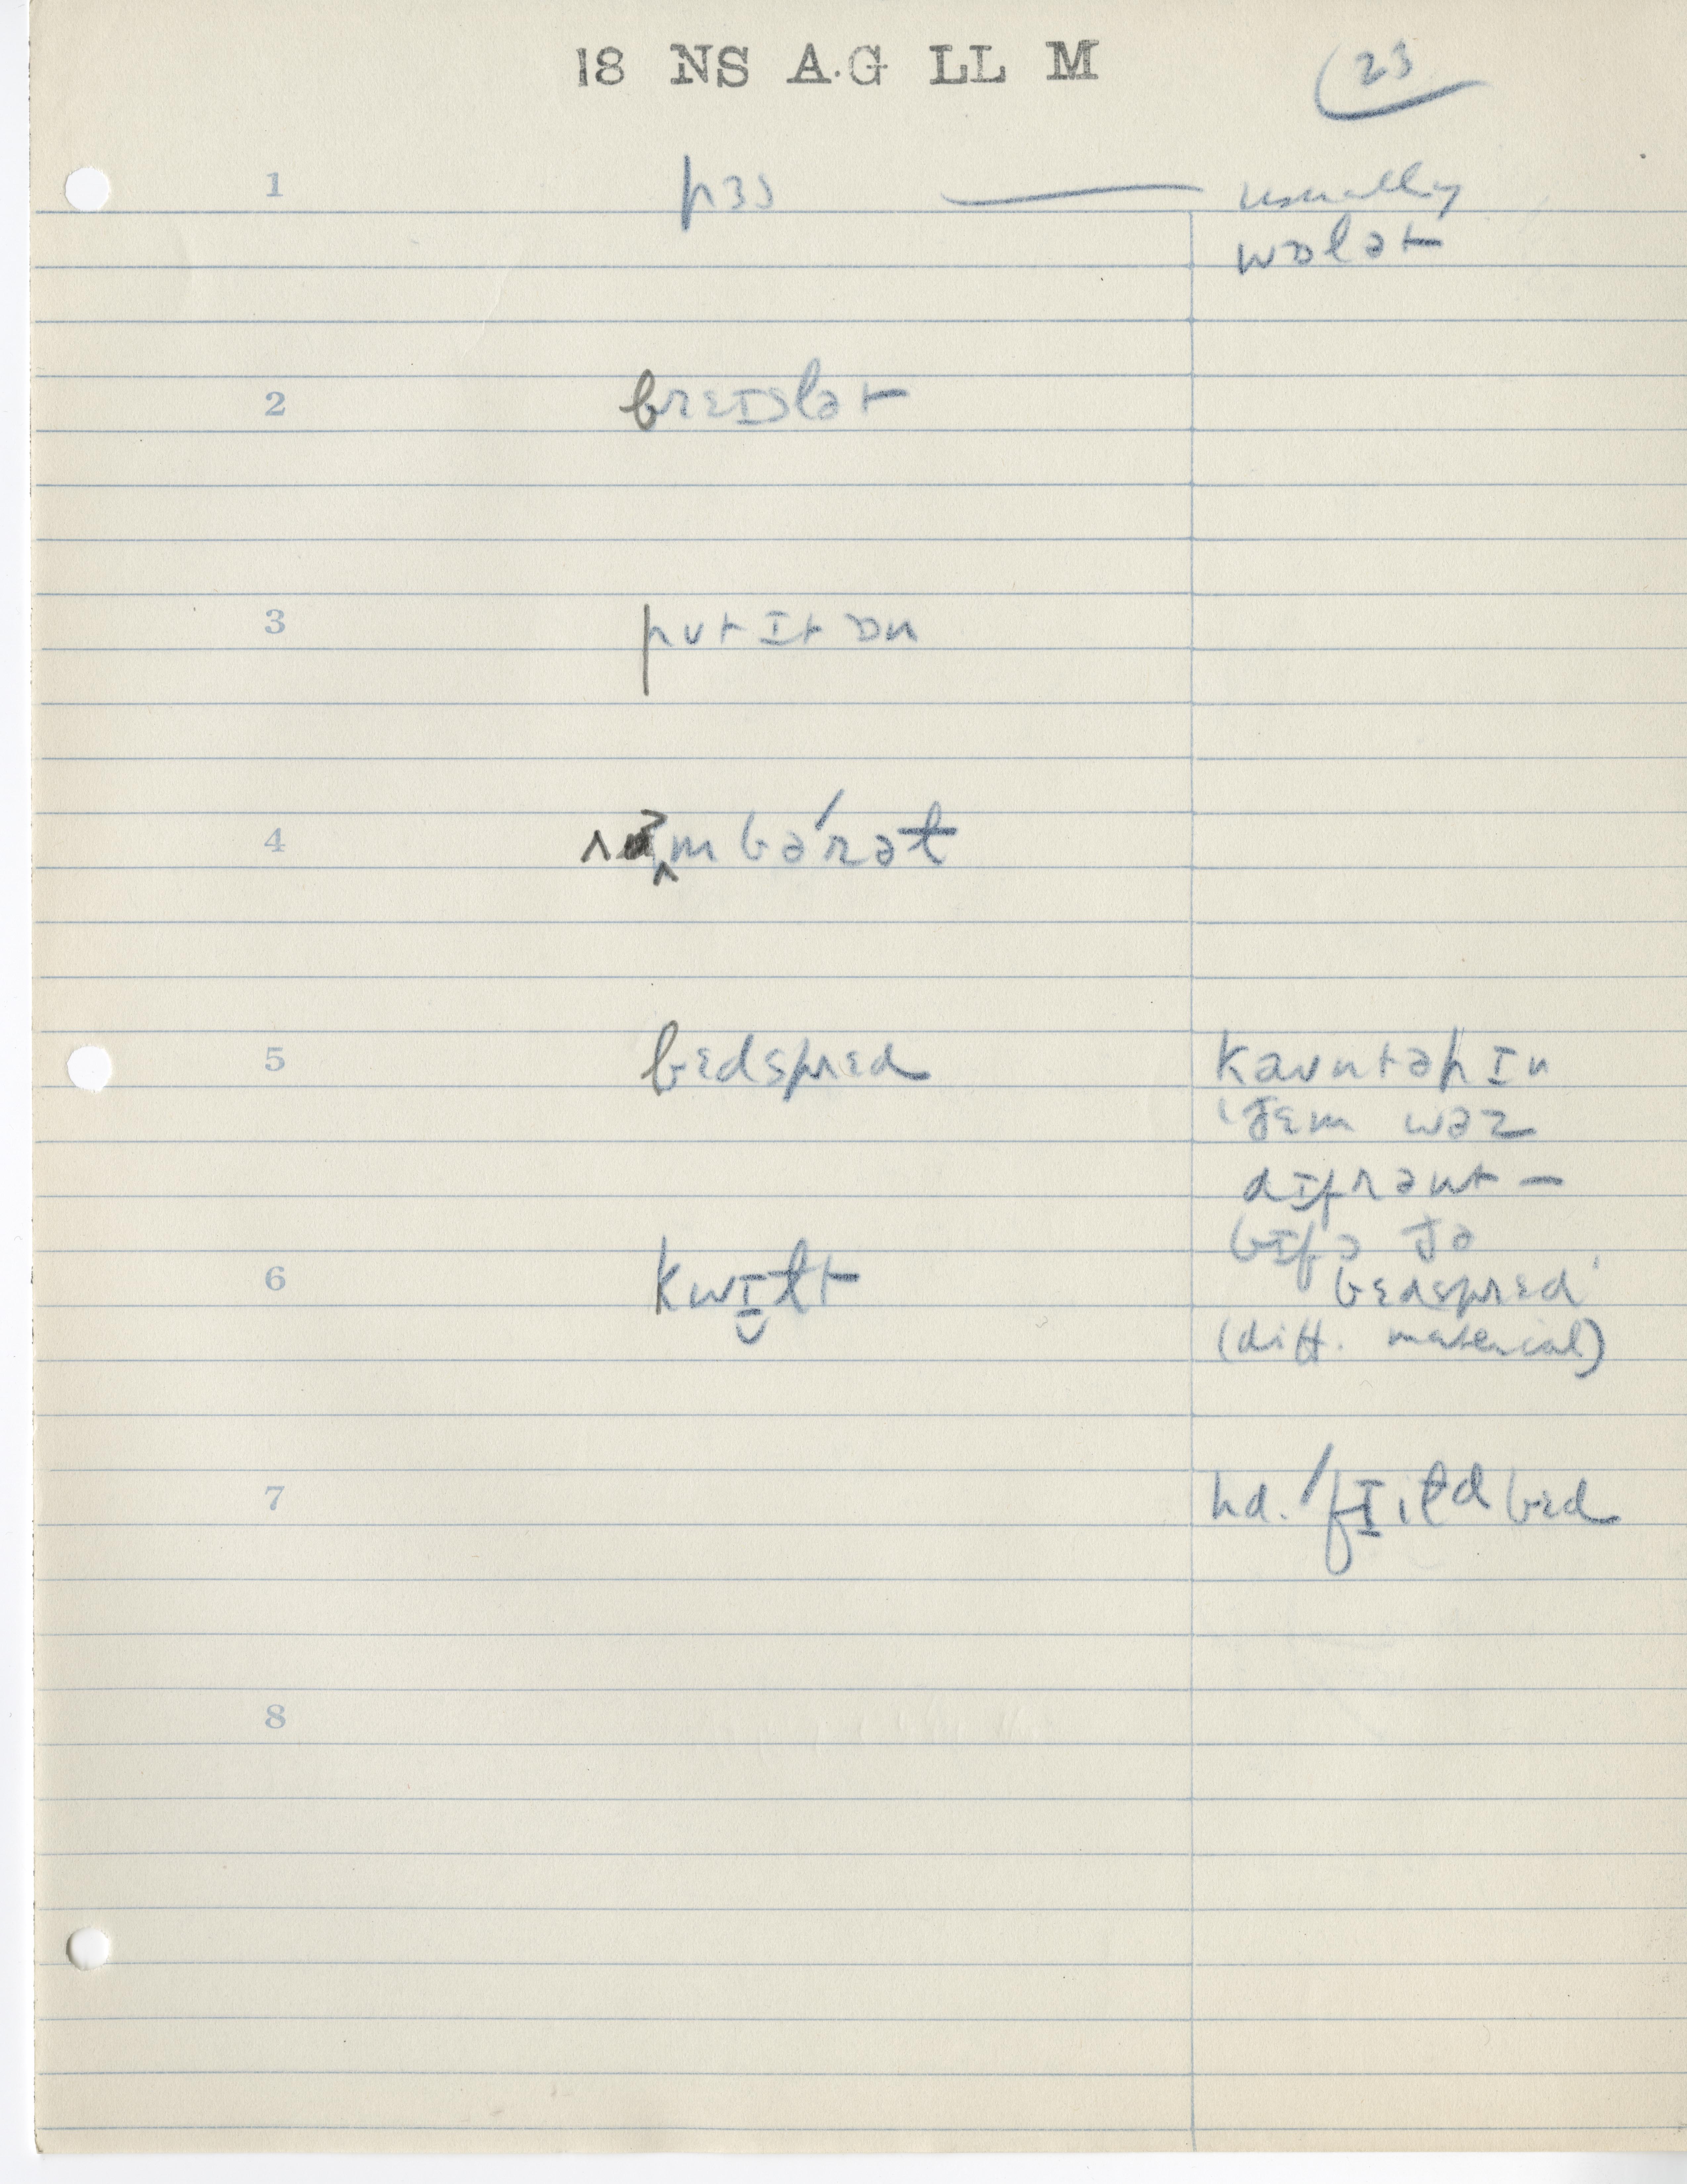 18 NS A.G LL M
23
1 pɜs — usually
wɔlət
2 breɪslət
3 pʊt ɪt ɔn
4 ʌmbə́rəɫ
5 bɛdsprɛd kaʊntəpɪn
ðɛm wəz
dɪfrənt —
bɪfɔ ðə
6 kwɪ̬ɫt bɛdsprɛd
(diff. material)
7 hd. ˈfɪiɫd bɛd
8